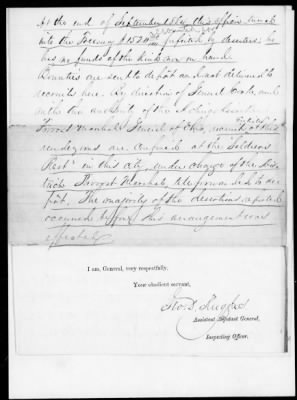 At the end of September this officer turned
into the Treasury $1520 forfeited by deserters; he
has no funds of the kind now on hand
Bounties are sent to depot and not delivered to
recruits here. By direction of General
with the of the
Provost Marshal General of Ohio, recruits at this
rendezvous are at the Soldiers
Rest in this city, under charge of the
Provost Marshal, till forwarded to de-
pot. The majority of the desertions reported
occurred before this arrangement was
effected
I am, General, very respectfully,
Your obedient servant,
Assistant Adjutant General,
Inspecting Officer.